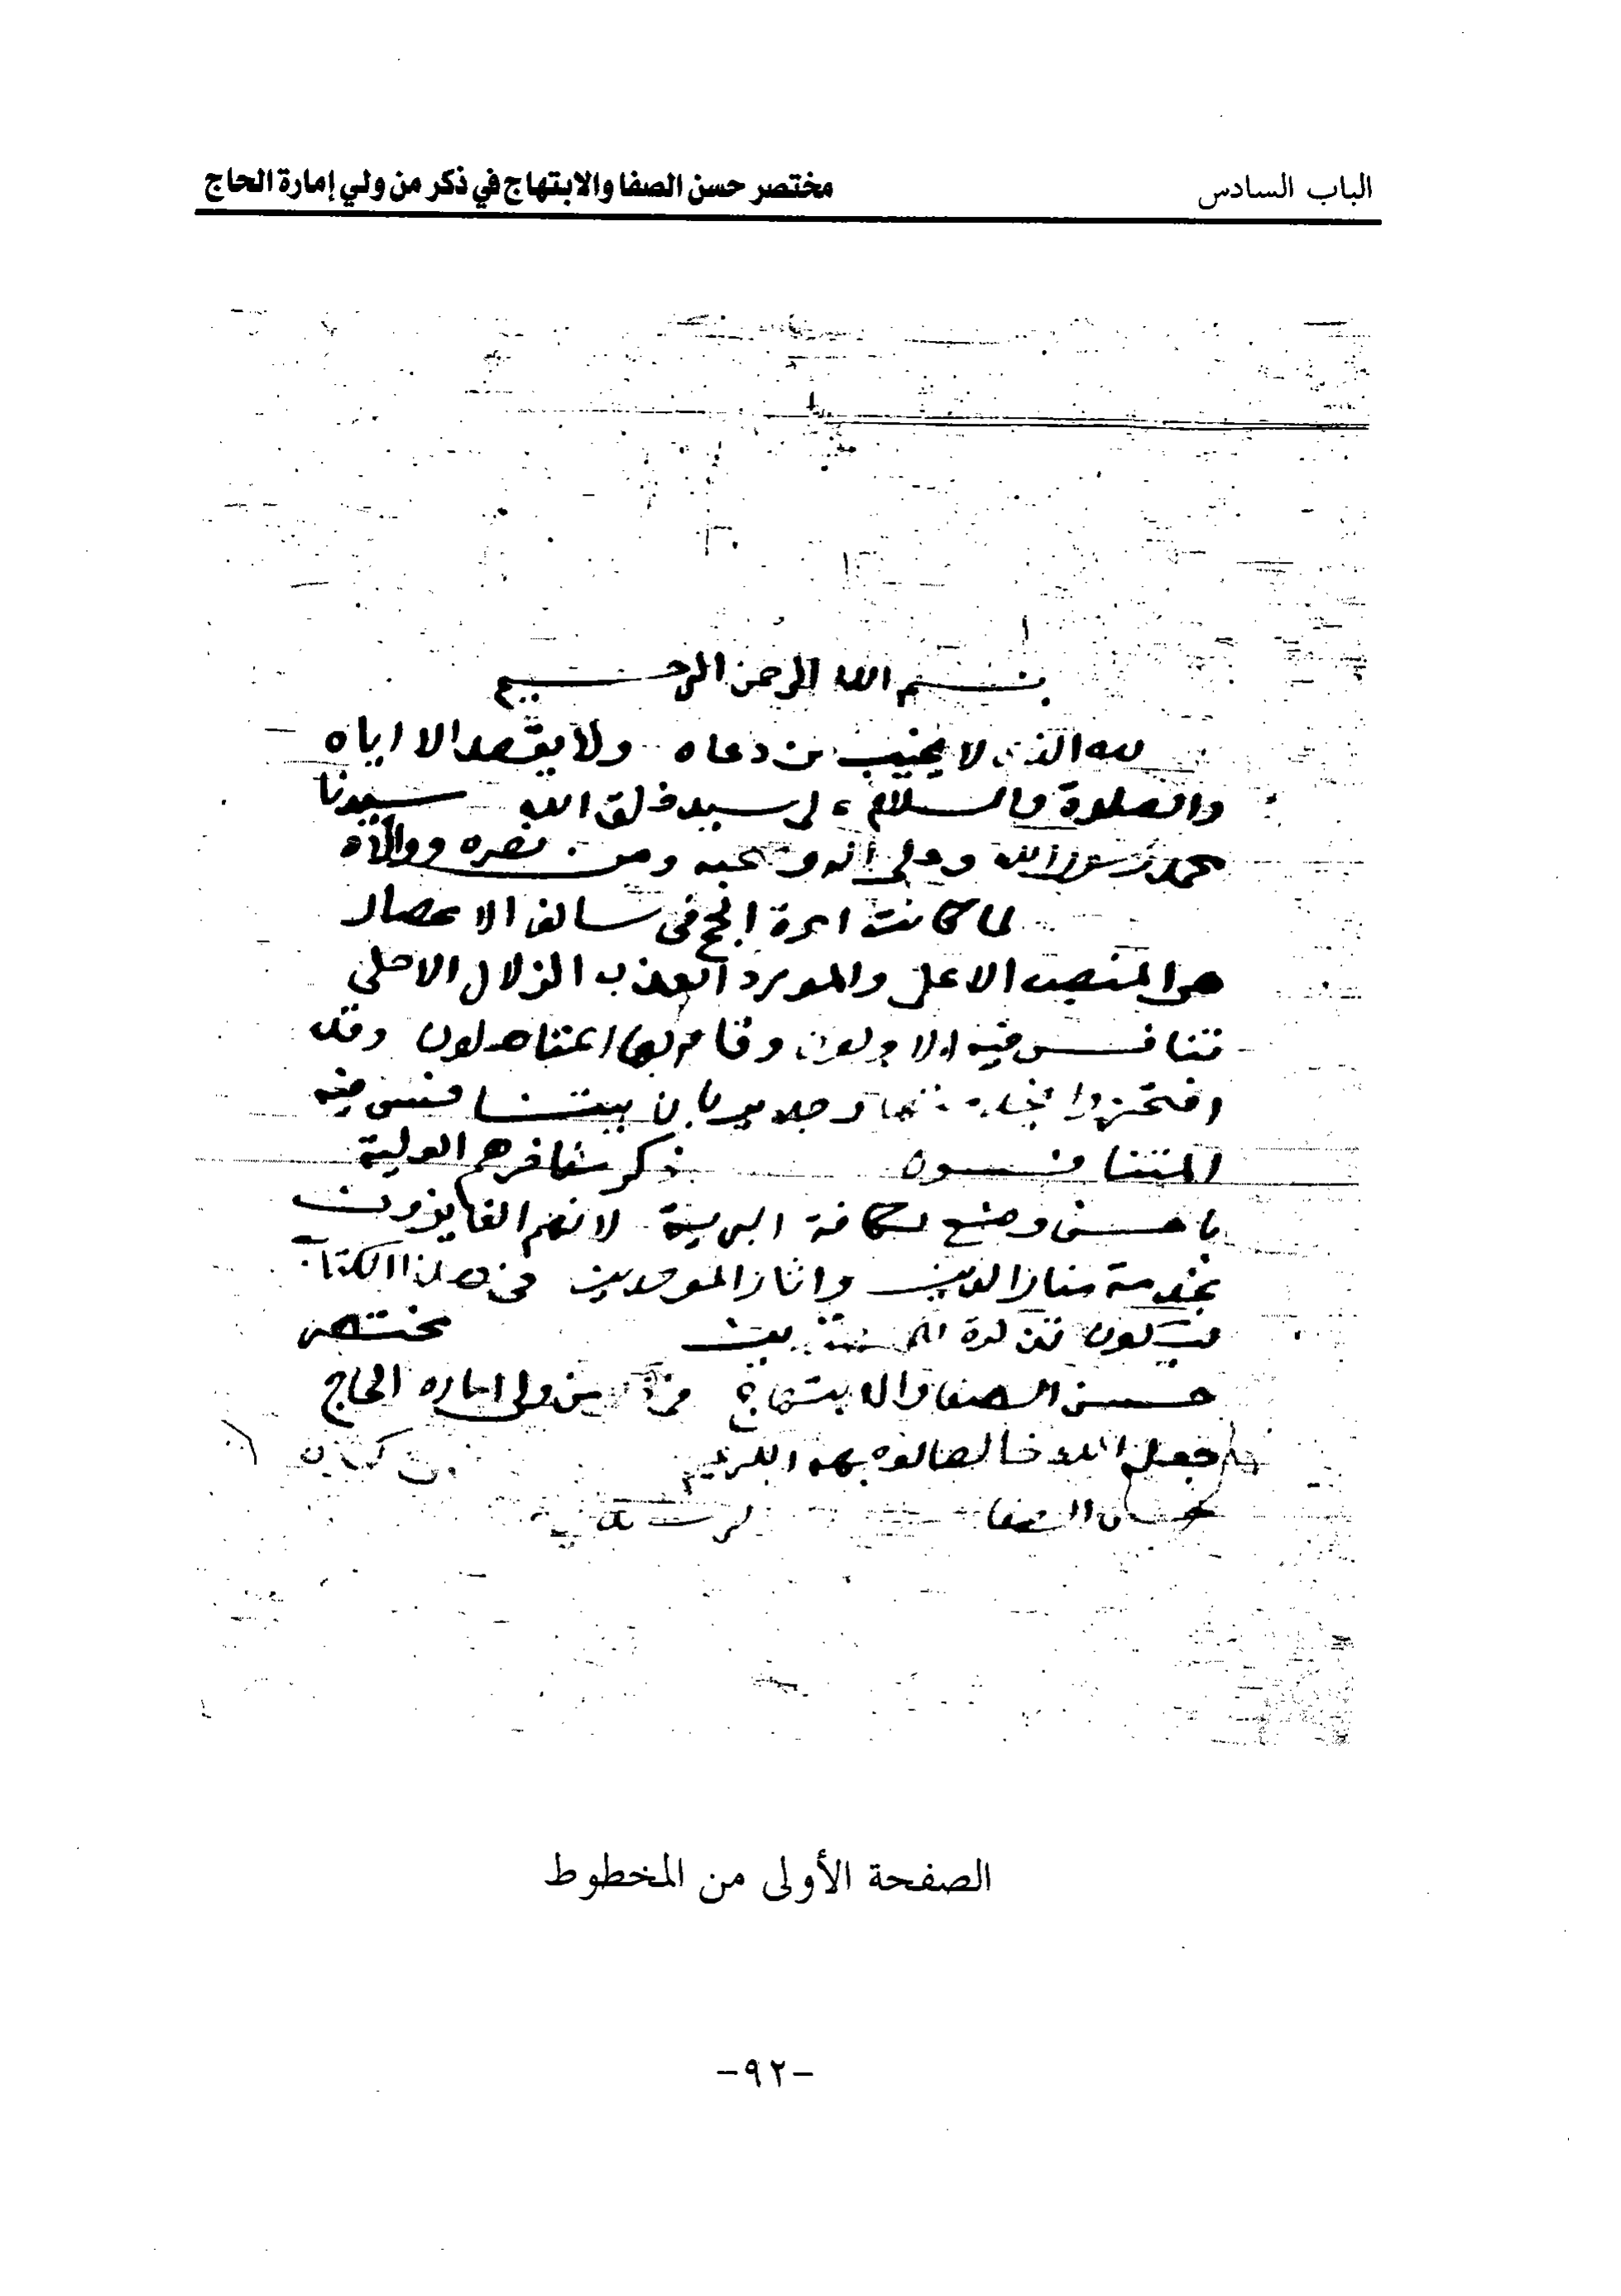 الباب السادس
مختصر حسن الصفا والابتهاج في ذكر من ولي إمارة الحاج
بسم الله الرحمن الرحيم
لله الذى لا يخيب من دعاه ولا يقصد الا اياه
والصلوة والسلام على سيد خلق الله سيدنا
محمد رسول الله وعلى اله وصحبه ومن نصره ووالاه
لما كانت امرة الحج فى سالف الاعصار
هى المنصب الاعلى والمورد العذب الزلال الاحلى
تنافس فيه الاولون وقام بها المتاهلون وقد
افتخروا بخدمة وجدير بان يتنافس فيه
المتنافسون ذكر مفاخرهم العلية
باحسن وضع لكافة البرية لانهم الفايزون
بخدمة منار الدين واثار الموحدين فى هذا الكتاب
فيكون تذكرة مختصر
حسن الصفا والابتهاج من ولى اماره الحاج
جعل الله خالصا لوجهه الكريم
حسن الصفا
الصفحة الأولى من المخطوط
-٩٢-